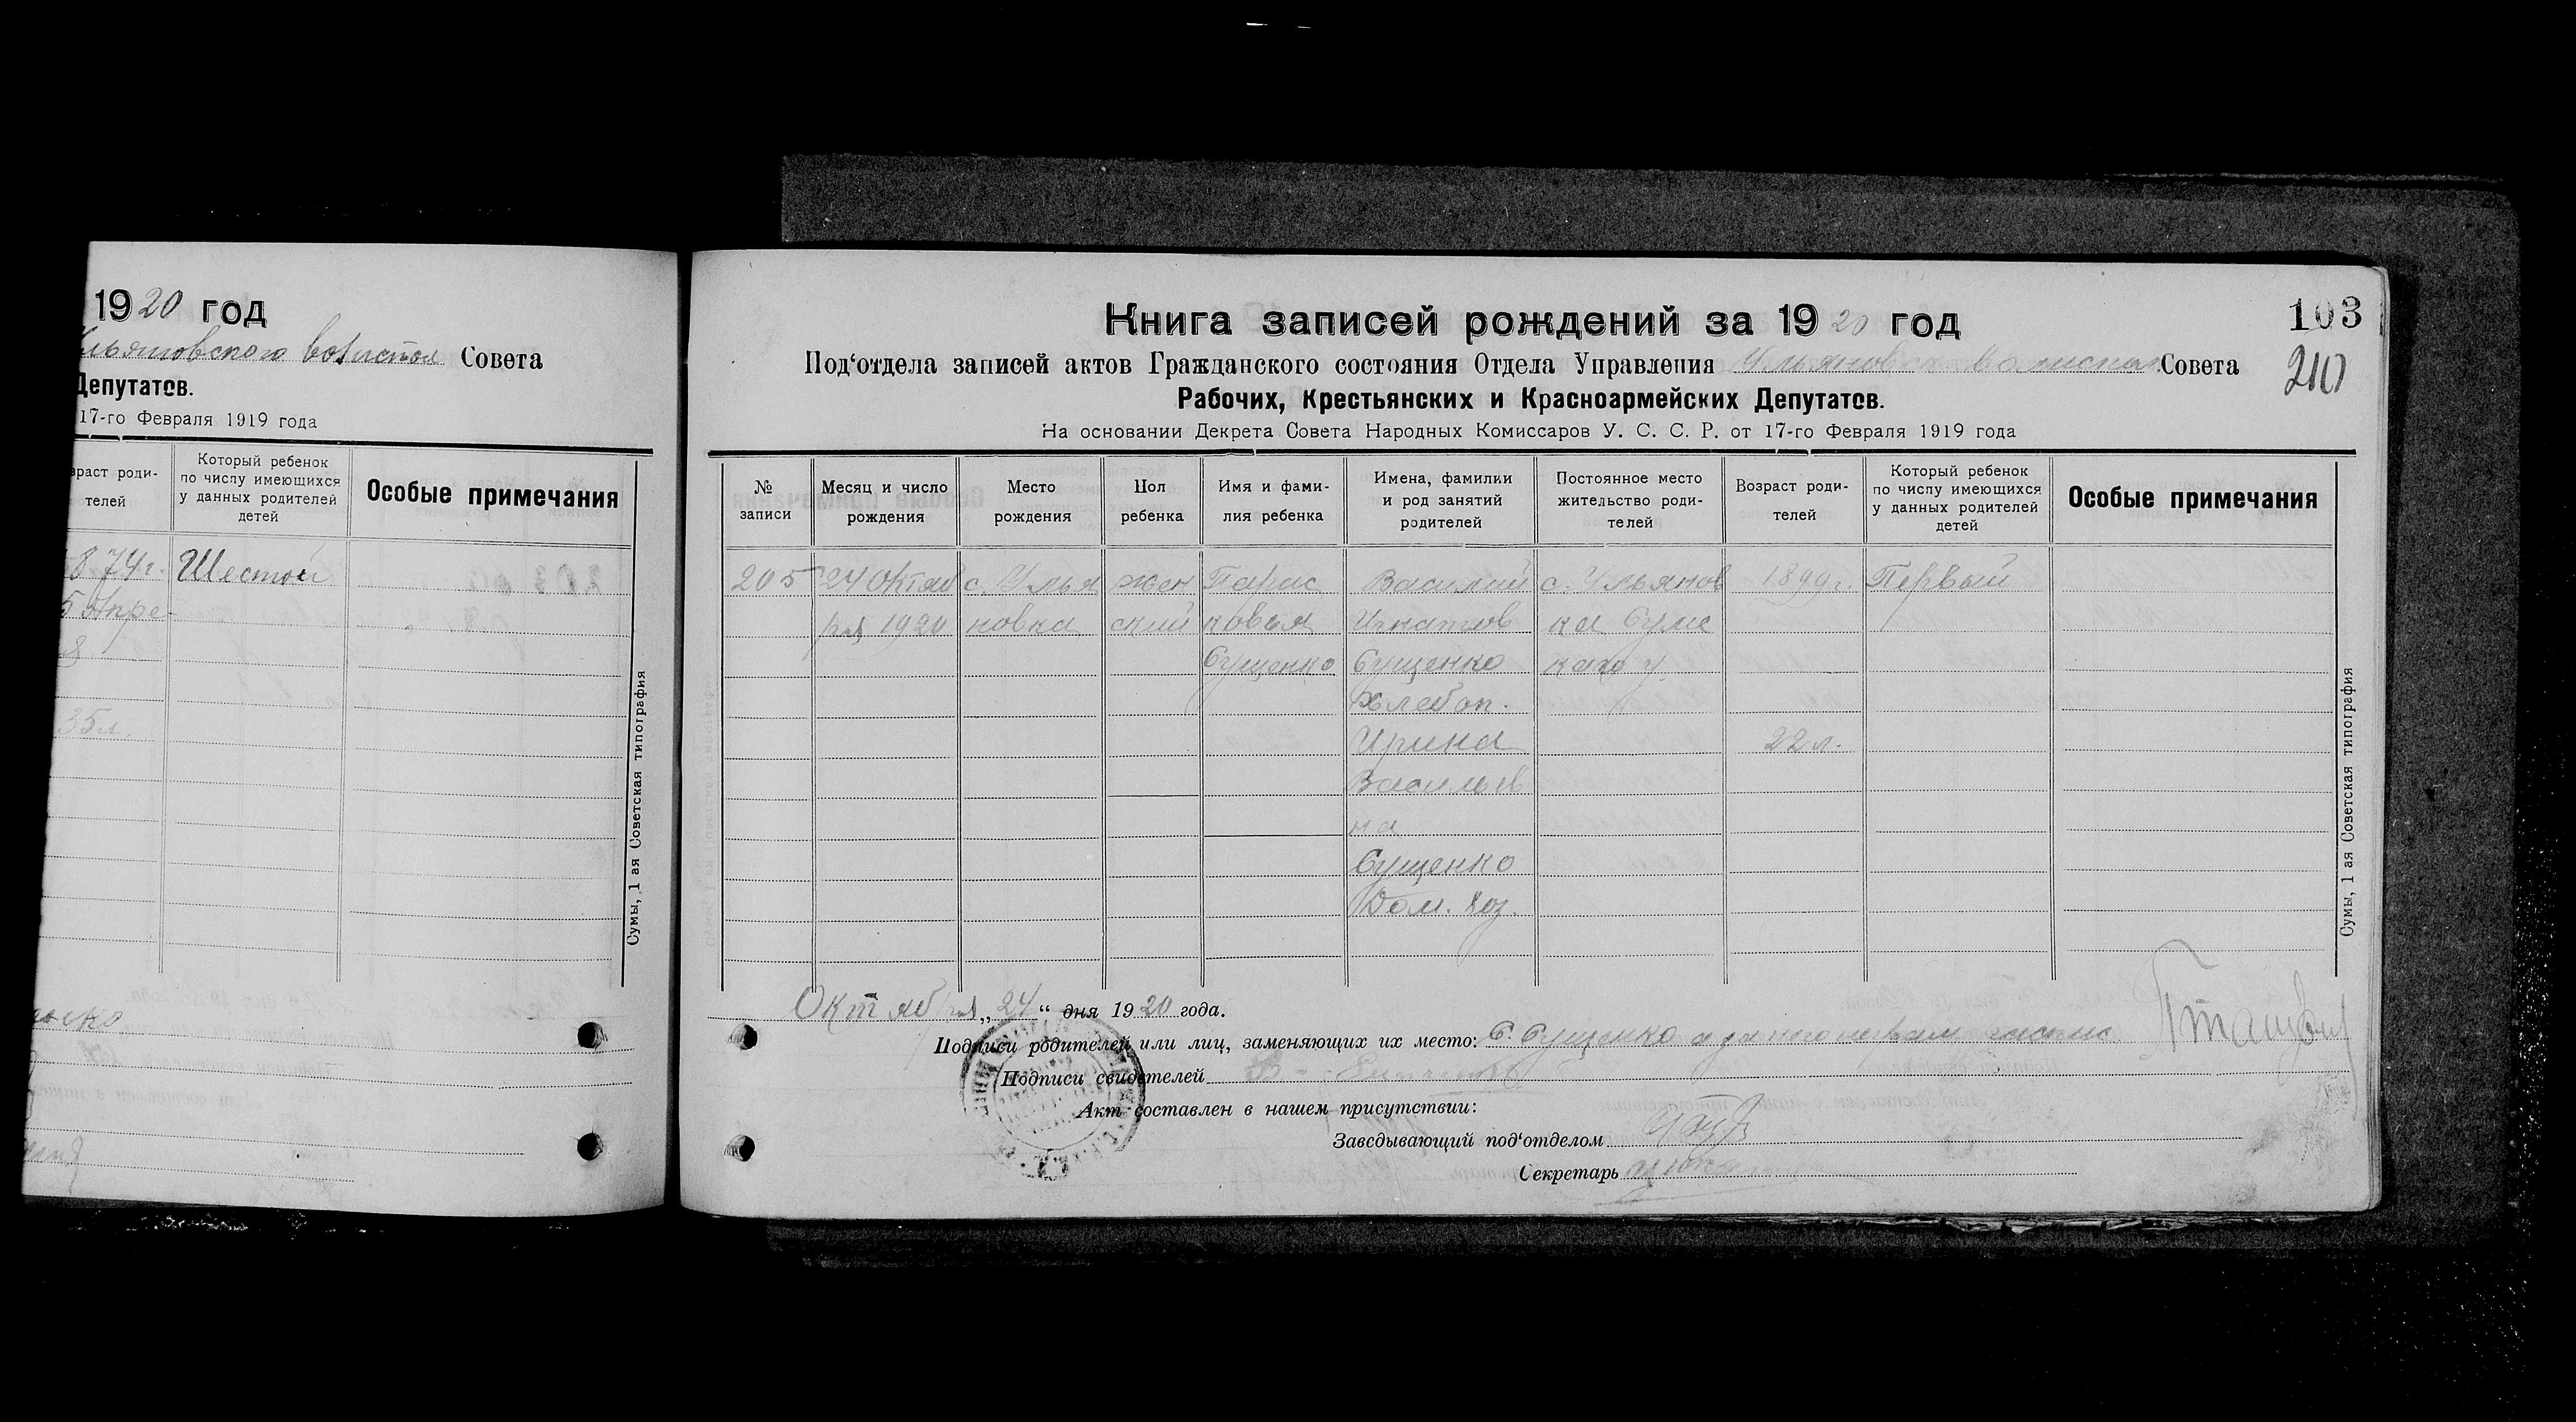 1920 год
льяновского волостн Совета
Депутатов.
17-го Февраля 1919 года
зраст роди-
телей
Который ребенок
по числу имеющихся
у данных родителей
детей
Особые примечания
874г. Шестой
5 Апре-
8
35л.
Сумы, 1 ая Советская типография
Книга записей рождений за 1920 год
103
Под‘отдела записей актов Гражданского состояния Отдела Управления Ульяновск волостн Совета
210
Рабочих, Крестьянских и Красноармейских Депутатов.
На основании Декрета Совета Народных Комиссаров У. С. С. Р. от 17-го Февраля 1919 года
№
записи
Месяц и число
рождения
Место
рождения
Пол
ребенка
Имя и фами-
лия ребенка
Имена, фамилии
и род занятий
родителей
Постоянное место
жительство роди-
телей
Возраст роди-
телей
Который ребенок
по числу имеющихся
у данных родителей
детей
Особые примечания
205 24 Октяб с. Улья жен Парас Василий с. Ульянов 1899г. Первый
ря 1920 новка ский ковья Игнатов ка Сумс
Сущенко Сущенко каго у.
Хлебоп.
Ирина 22 л.
Васильев
на
Сущенко
Дом. Хоз.
Сумы, 1 ая Советская типография
Октября „24“ дня 1920 года.
Подписи родителей или лиц, заменяющих их место: Сущенко
Подписи свидетелей
Акт составлен в нашем присутствии:
Заведывающий под‘отделом
Секретарь